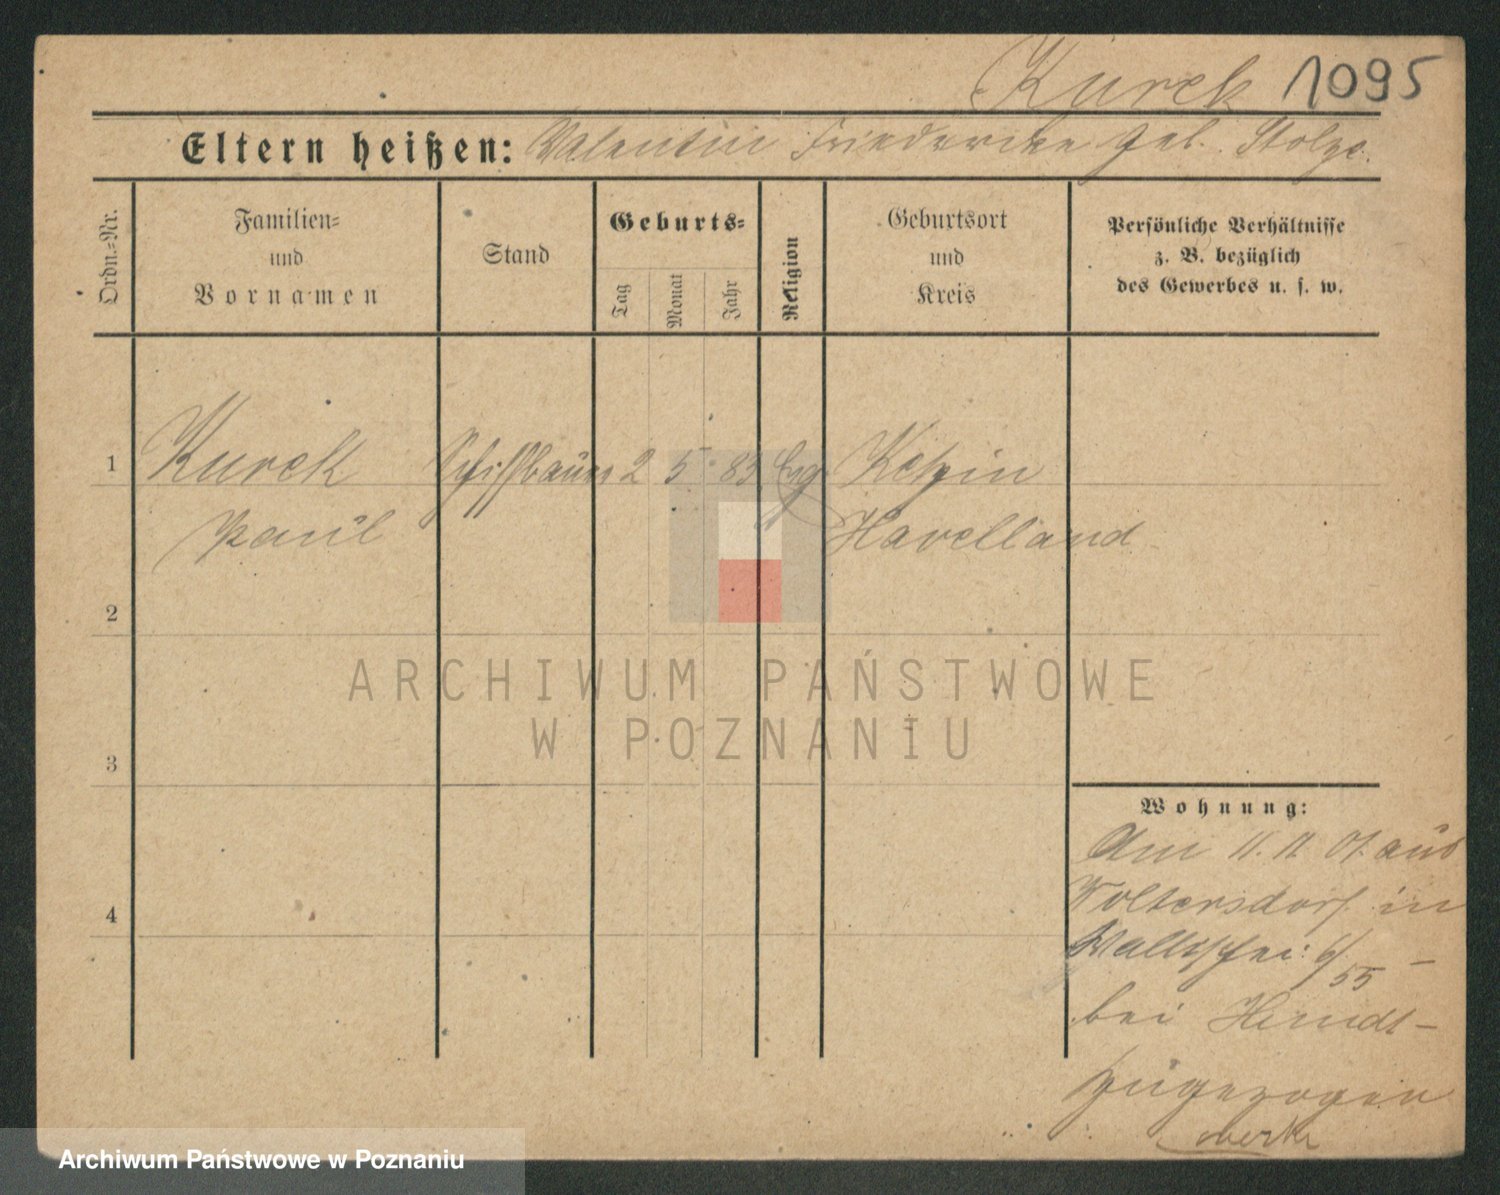 Kurek 1095
Eltern heißen: Valentin Friedericke geb. Stolze.
Ordn.=Nr.
Familien=
und
Vornamen
Stand
Geburts=
Tag
Monat
Jahr
Religion
Geburtsort
und
Kreis
Persönliche Verhältnisse
z. B. bezüglich
des Gewerbes u. s. w.
1 Kurek Schiffbauer 2 5 83 Evg Ketzin
Paul Havelland
2
ARCHIWUM PAŃSTWOWE
W POZNANIU
3
Wohnung:
Am 11. 11. 07. aus
4 Woltersdorf in
6/55
bei
zugezogen
Archiwum Państwowe w Poznaniu